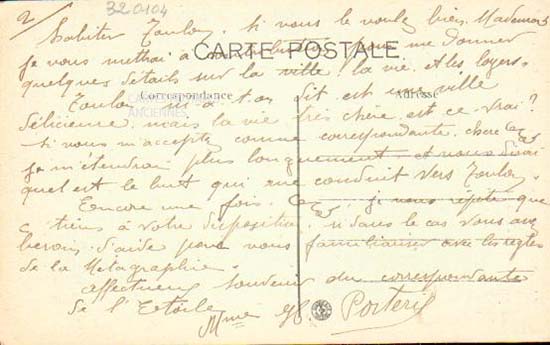 2/
320104
habiter Toulon. Si vous le voulez bien, Mademois
CARTE POSTALE
je vous mettrai à contribution pour me donner
quelques détails sur la ville, la vie et les loyers.
Correspondance
Adresse
CARTES
ANCIENNES
Toulon m'a t'on dit est une ville
délicieuse, mais la vie très chère, est-ce vrai?
Si vous m'acceptez comme correspondante, chère
je m'étendrai plus longuement et vous dirai
quel est le but qui me conduit vers Toulon.
Encore une fois, je vous répète que
tiens à votre disposition, si dans le cas vous avez
besoin d'aide pour vous familiariser avec les règles
de la Métagraphie.
affectueux souvenir du correspondante
de l'Etoile
Mme